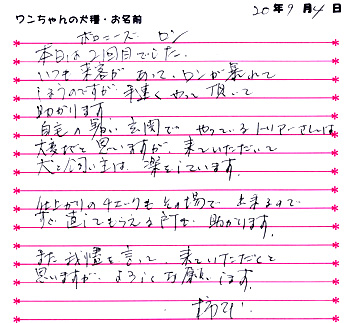 20年9月4日
ワンちゃんの犬種・お名前
ボロニーズ ロン
本日は2回目でした。
いつも来客があって、ロンが暴れて
しまうのですが手速くやって頂いて
助かります
自宅の狭い玄関でやっているトリマーさんは
大変だと思いますが、来ていただいて
犬と飼い主は楽をしています。
仕上がりのチェックもその場で出来るので
すぐ直してもらえる所も助かります。
また我儘を言って、来ていただだくと
思いますが、よろしくお願いします。